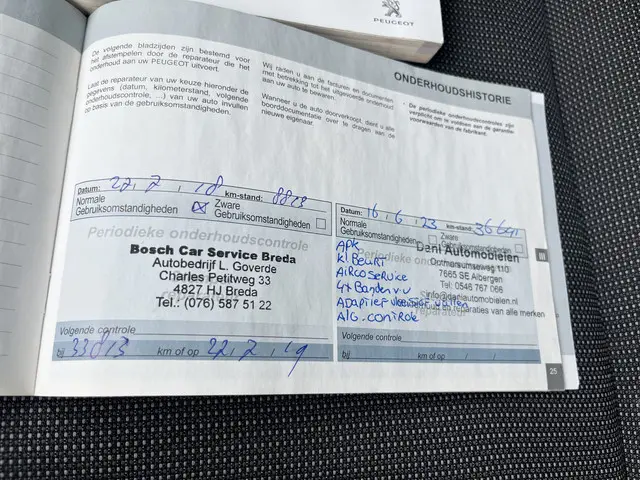 PEUGEOT
ONDERHOUDSHISTORIE
De volgende bladzijden zijn bestemd voor
het afstempelen door de reparateur die het
onderhoud aan uw PEUGEOT uitvoert.
Laat de reparateur van uw keuze hieronder de
gegevens (datum, kilometerstand, volgende
onderhoudscontrole, ...) van uw auto invullen
op basis van de gebruiksomstandigheden.
Wij raden u aan de facturen en documenten
met betrekking tot het uitgevoerde onderhoud
aan uw auto te bewaren.
Wanneer u de auto doorverkoopt, dient u alle
boorddocumentatie over te dragen aan de
nieuwe eigenaar.
* De periodieke onderhoudscontroles zijn
verplicht om te voldoen aan de garantie-
voorwaarden van de fabrikant.
Datum: 22, 2, 18 km-stand: 8813
Normale
Gebruiksomstandigheden
Zware
Gebruiksomstandigheden
Periodieke onderhoudscontrole
Bosch Car Service Breda
Autobedrijf L. Goverde
Charles Petitweg 33
4827 HJ Breda
Tel.: (076) 587 51 22
Volgende controle
bij 33813 km of op 22, 2, 19
Datum: 16, 6, 23 km-stand:
Normale
Gebruiksomstandigheden
Zware
Gebruiksomstandigheden
Dani Automobielen
7665 SE Albergen
Tel: 0546 767 066
info@daniautomobielen.nl
en reparaties van alle merken
APK
Kl Beurt
AiRco seRvice
4x Banden v.v
ADAPtief
Alg. contRole
Volgende controle
bij km of op / /
III
25